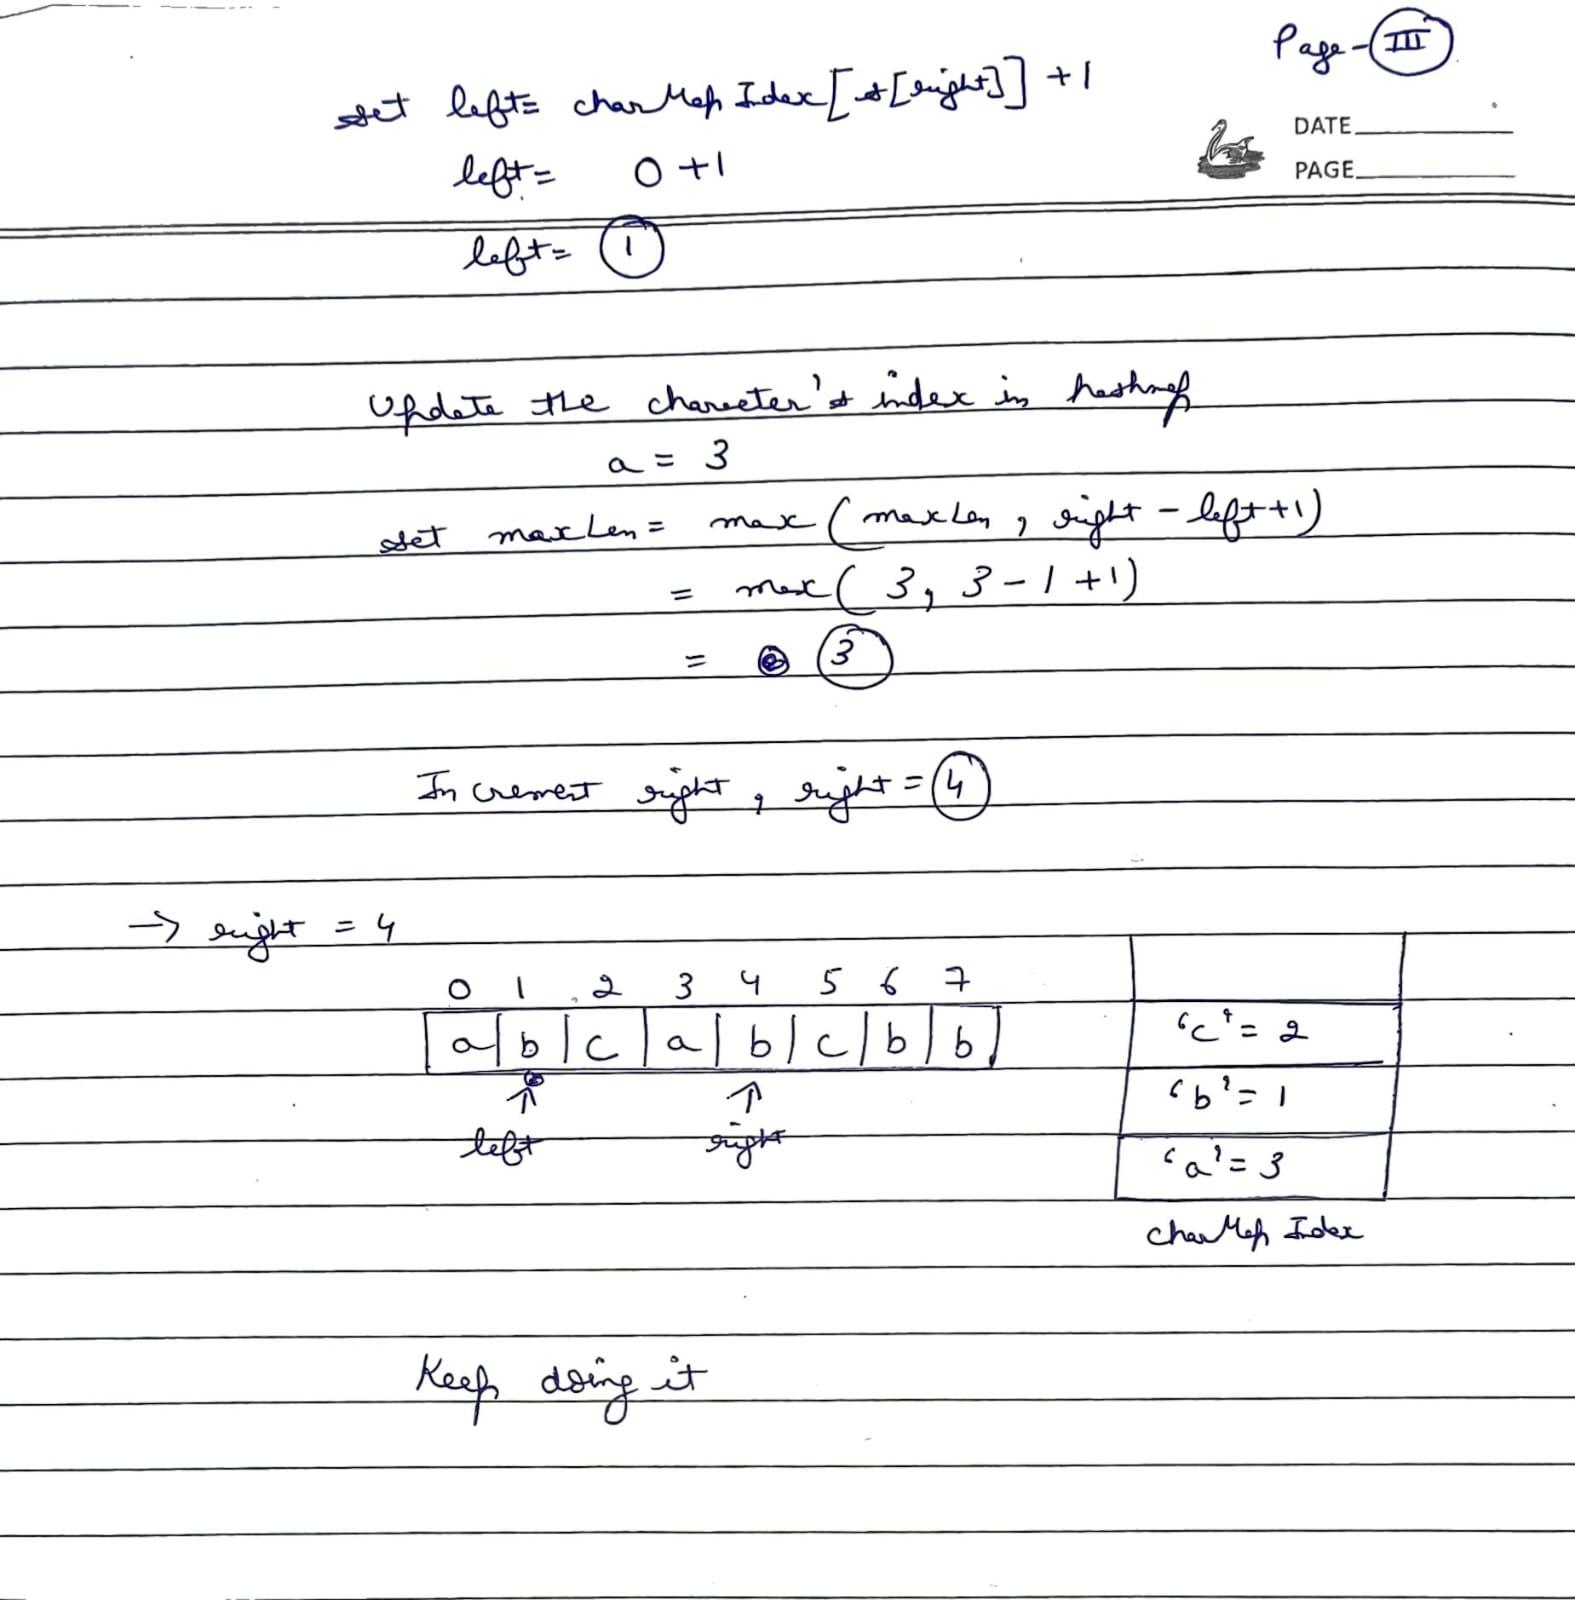 Page - III
set left = charMap Index [s[right]] + 1
DATE
left = 0 + 1
PAGE
left = 1
Update the character's index in hashmap
a = 3
set maxLen = max ( maxLen , right - left + 1)
= max ( 3, 3 - 1 + 1)
= 3
Increment right , right = 4
→ right = 4
0 1 2 3 4 5 6 7
a b c a b c b b
'c' = 2
'b' = 1
'a' = 3
left right
charMap Index
Keep doing it